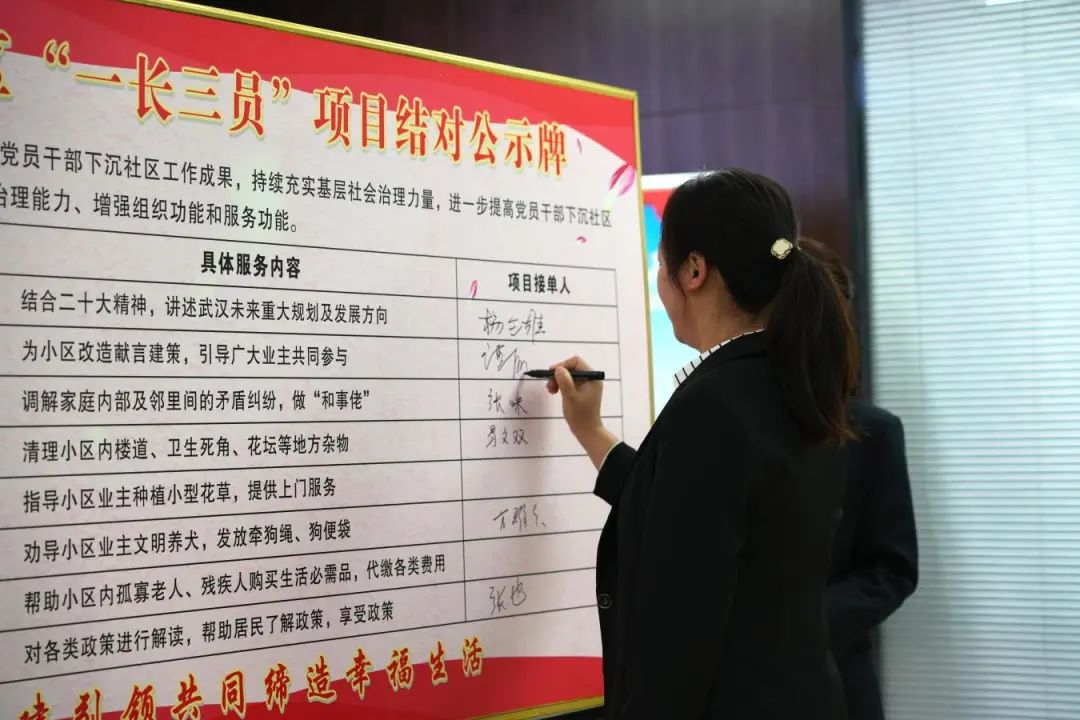 区“一长三员”项目结对公示牌
党员干部下沉社区工作成果，持续充实基层社会治理力量，进一步提高党员干部下沉社区
治理能力、增强组织功能和服务功能。
具体服务内容 项目接单人
结合二十大精神，讲述武汉未来重大规划及发展方向
为小区改造献言建策，引导广大业主共同参与
调解家庭内部及邻里间的矛盾纠纷，做“和事佬” 张咪
清理小区内楼道、卫生死角、花坛等地方杂物
指导小区业主种植小型花草，提供上门服务
劝导小区业主文明养犬，发放牵狗绳、狗便袋
帮助小区内孤寡老人、残疾人购买生活必需品，代缴各类费用
对各类政策进行解读，帮助居民了解政策，享受政策
建引领共同缔造幸福生活